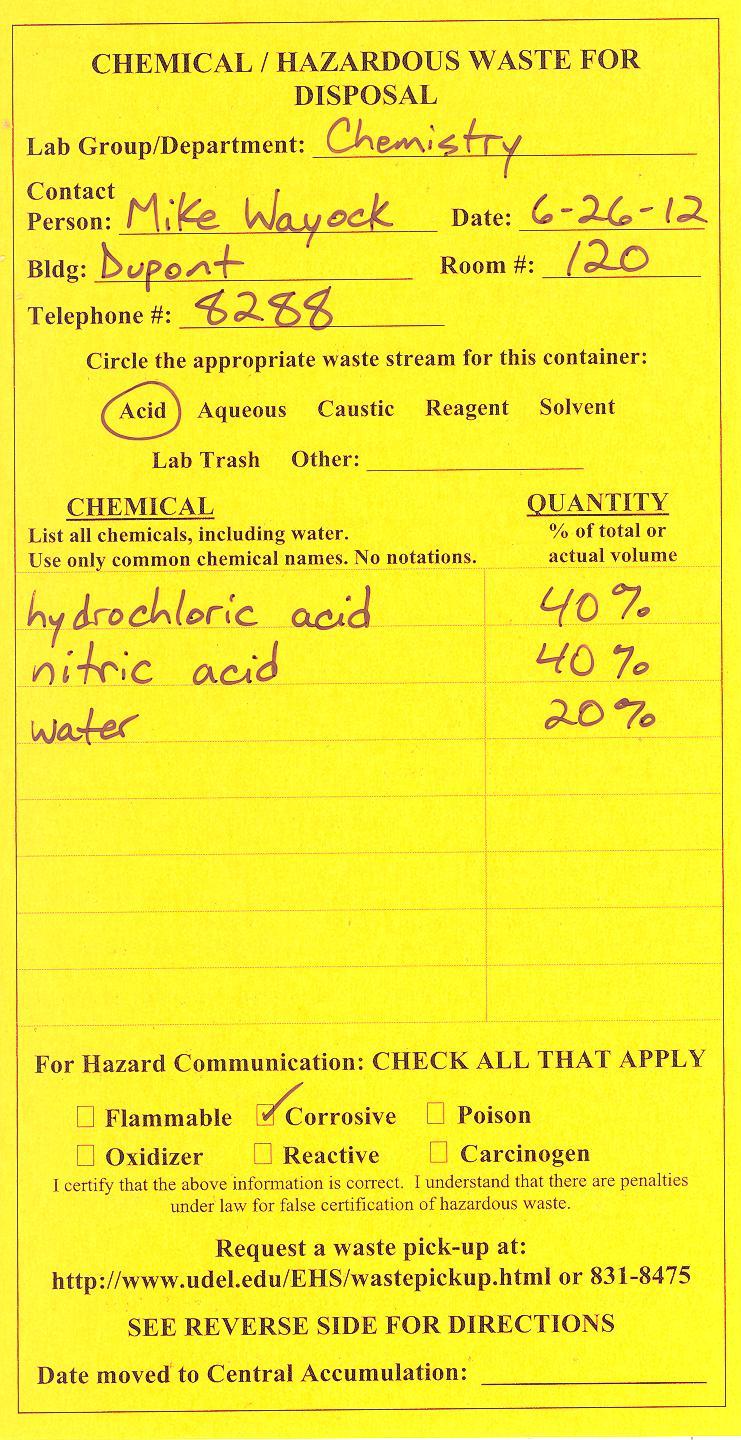 CHEMICAL / HAZARDOUS WASTE FOR
DISPOSAL
Lab Group/Department: Chemistry
Contact
Person: Mike Wayock Date: 6-26-12
Bldg: Dupont Room #: 120
Telephone #: 8288
Circle the appropriate waste stream for this container:
Acid Aqueous Caustic Reagent Solvent
Lab Trash Other:
CHEMICAL QUANTITY
List all chemicals, including water. % of total or
Use only common chemical names. No notations. actual volume
hydrochloric acid 40%
nitric acid 40%
water 20%
For Hazard Communication: CHECK ALL THAT APPLY
Flammable Corrosive Poison
Oxidizer Reactive Carcinogen
I certify that the above information is correct. I understand that there are penalties
under law for false certification of hazardous waste.
Request a waste pick-up at:
http://www.udel.edu/EHS/wastepickup.html or 831-8475
SEE REVERSE SIDE FOR DIRECTIONS
Date moved to Central Accumulation: